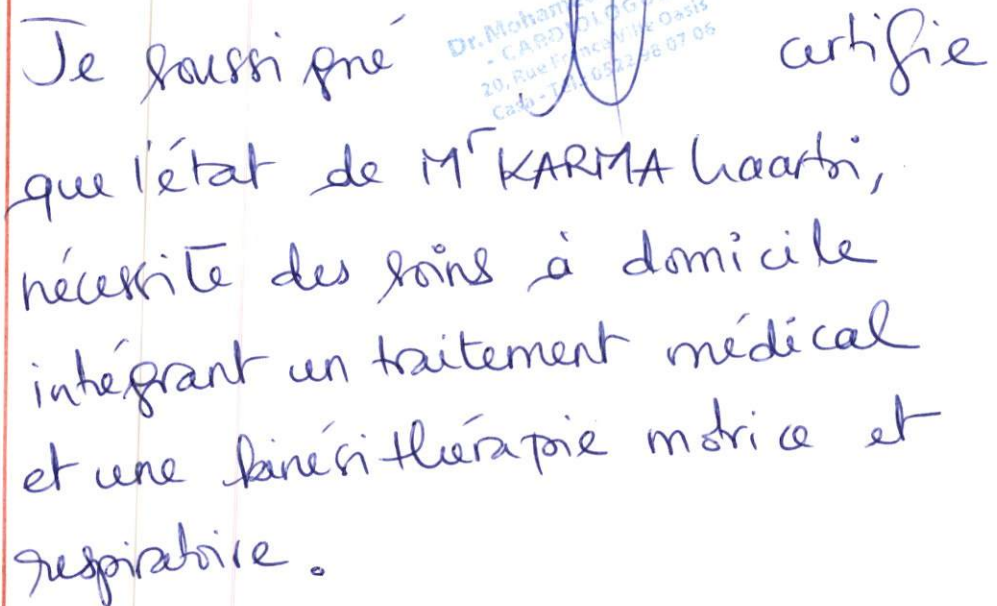 Dr. Moham
- CARDIOLOG
20, Rue France Ville Oasis
Casa - Tél. 0522 98 07 06
Je soussigné certifie
que l'état de Mr KARMA
nécessite des soins à domicile
intégrant un traitement médical
et une kinésithérapie motrice et
respiratoire.